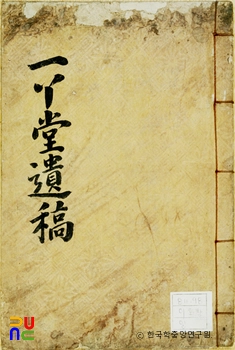 一丫堂遺稿
PUNE
© 한국학중앙연구원